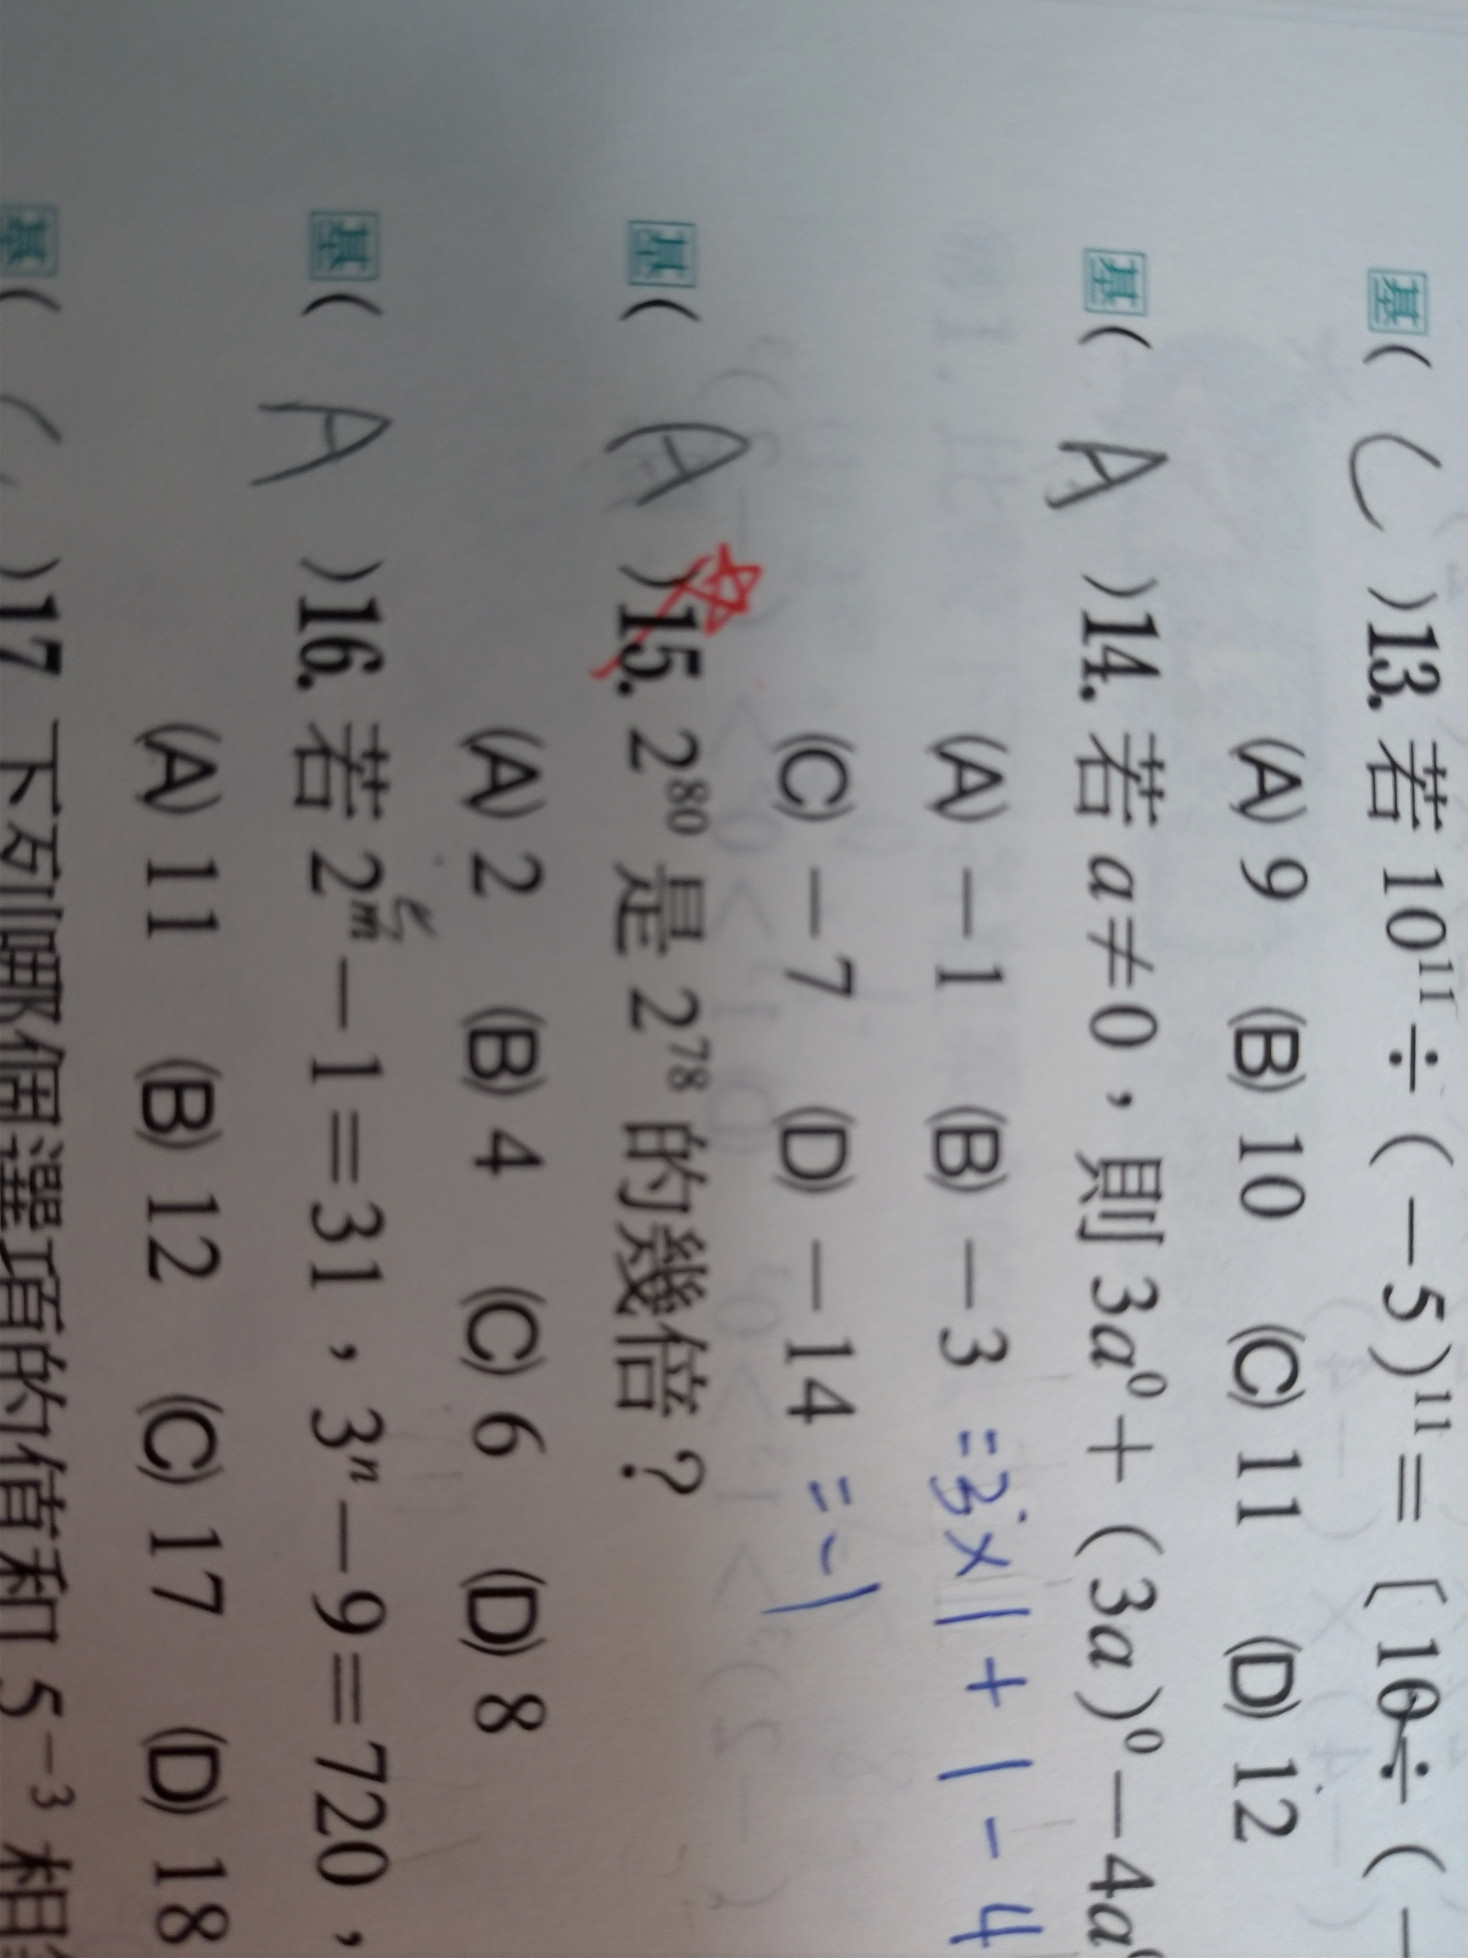 基( C )13. 若 10¹¹÷(-5)¹¹=〔10÷(-
(A) 9 (B) 10 (C) 11 (D) 12
基( A )14. 若 a≠0，則 3a⁰+(3a)⁰-4a⁰
(A) -1 (B) -3 =3×1+1-4
(C) -7 (D) -14 =-1
基( A )15. 2⁸⁰ 是 2⁷⁸ 的幾倍？
(A) 2 (B) 4 (C) 6 (D) 8
基( A )16. 若 2ᵐ-1=31，3ⁿ-9=720，
(A) 11 (B) 12 (C) 17 (D) 18
基( )17 下列哪個選項的值和 5⁻³ 相